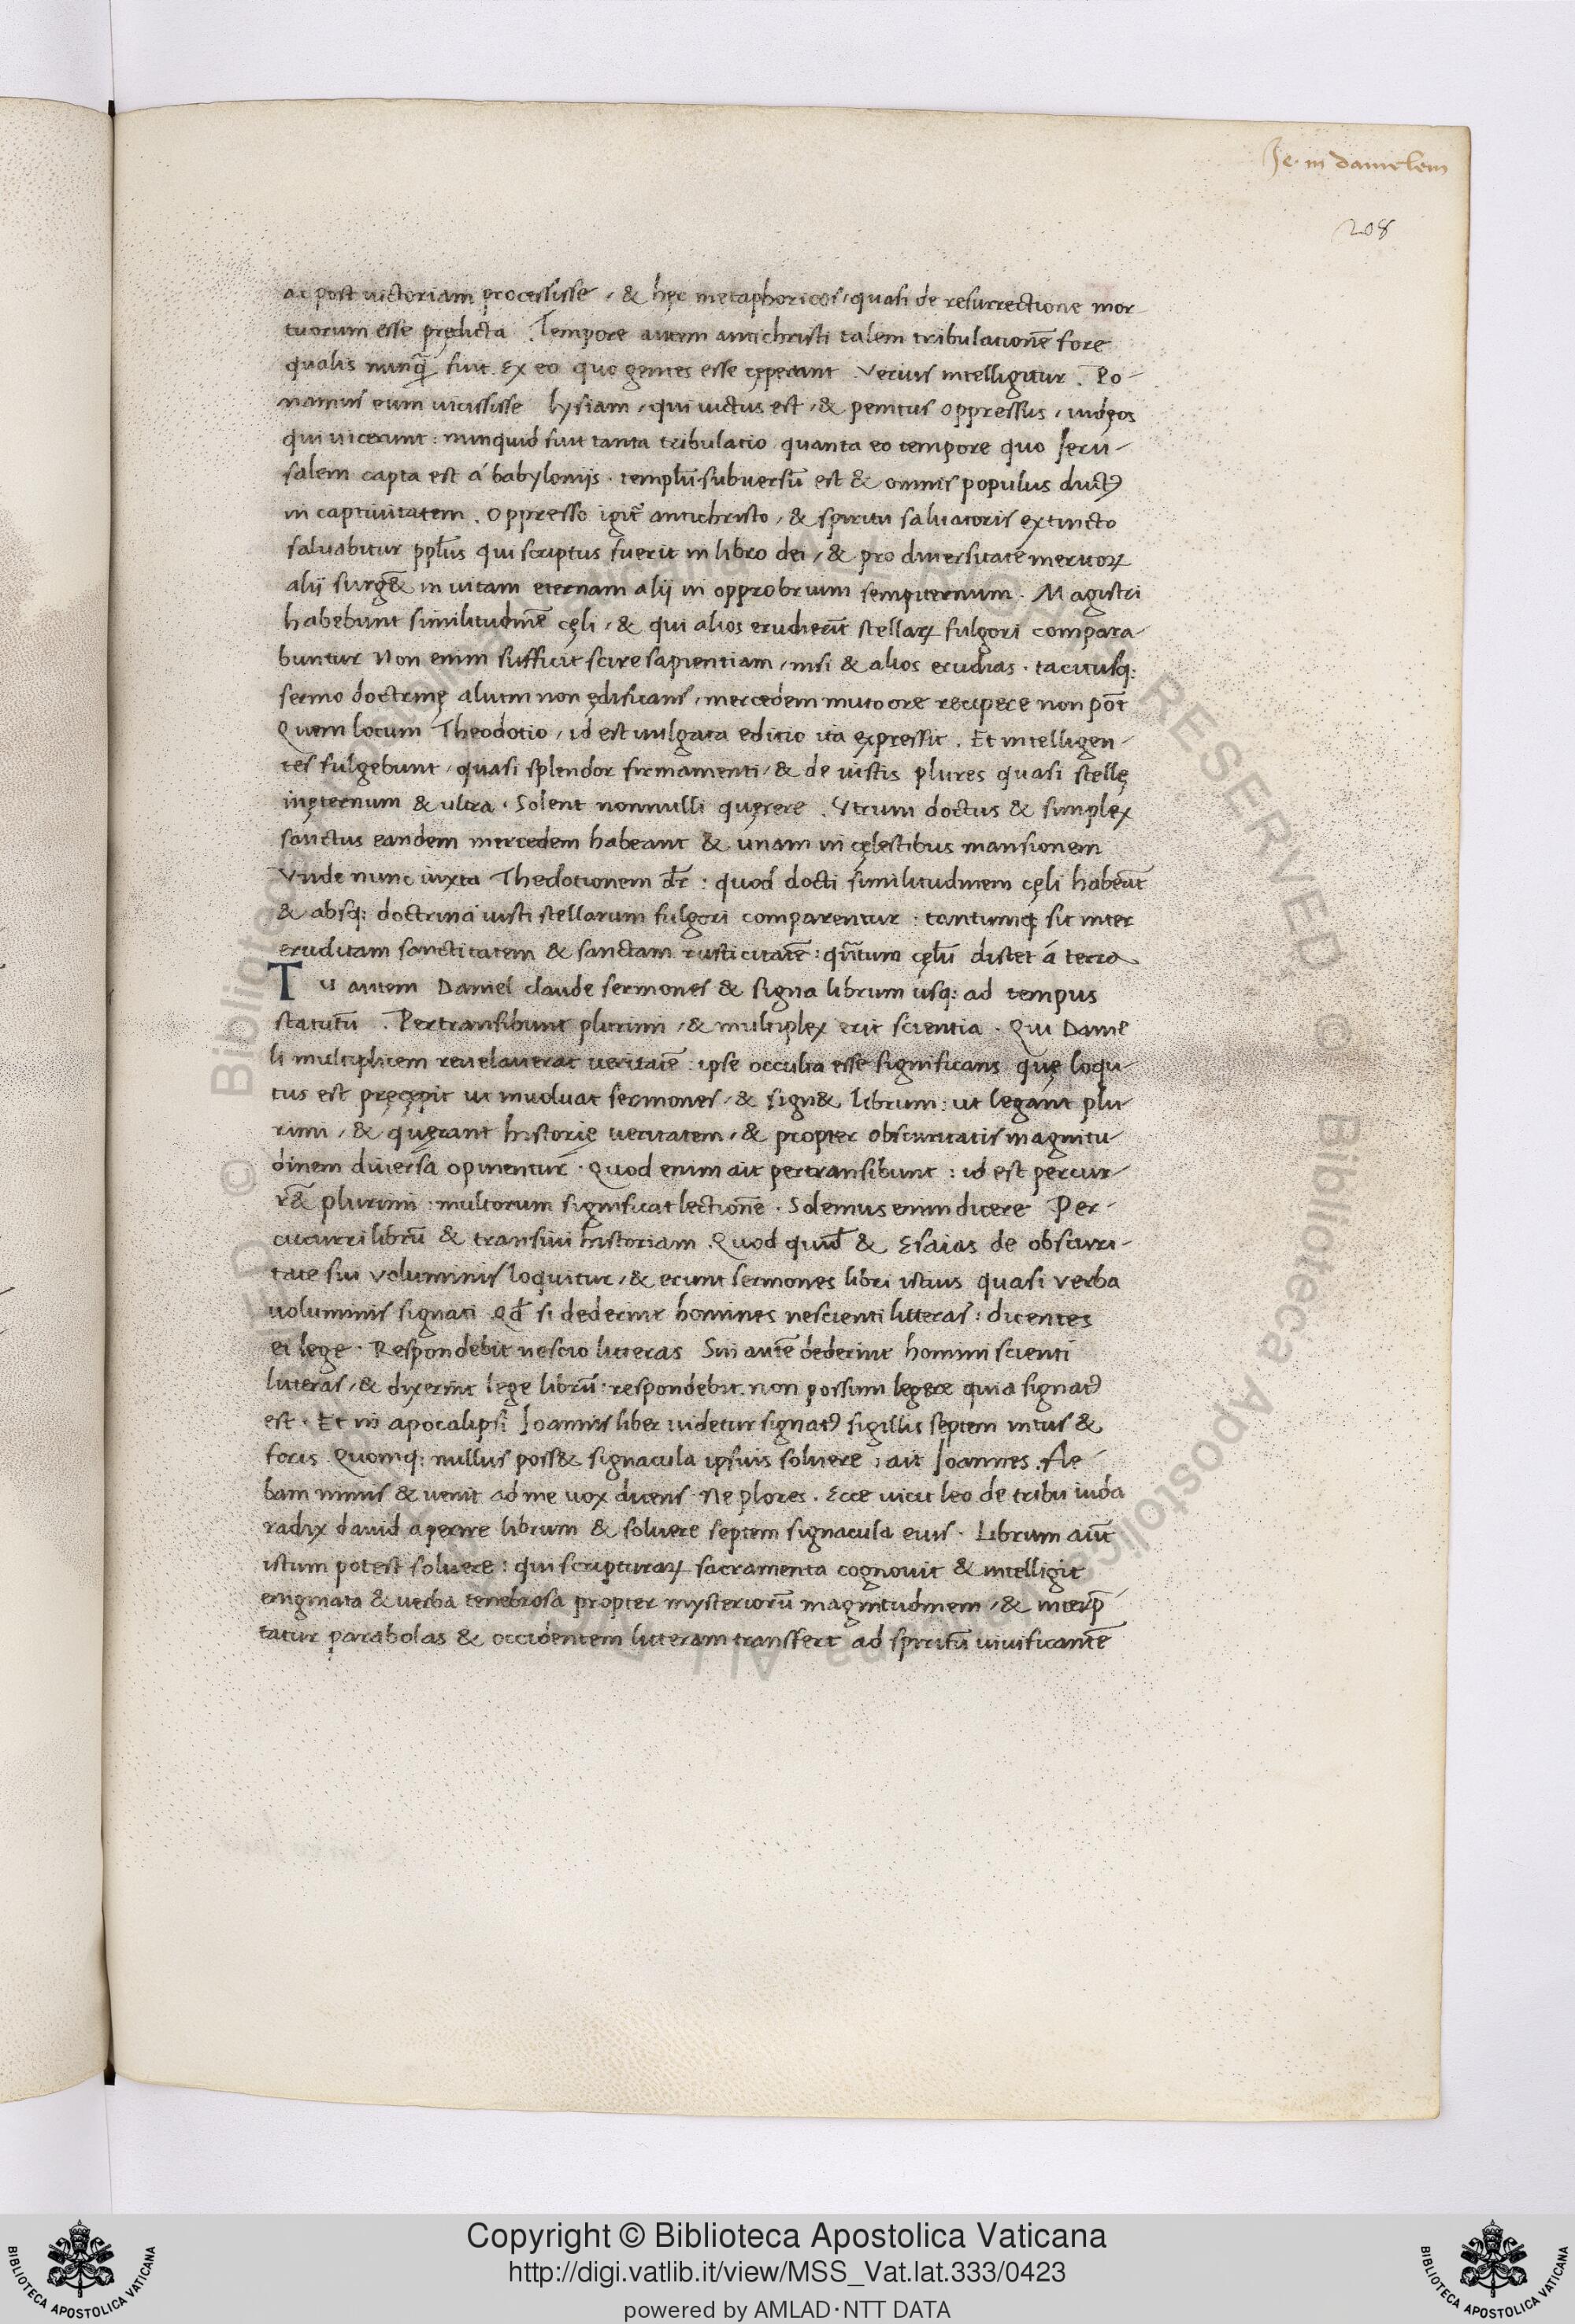 Je. in danielem
208
ac post uictoriam processisse, & hęc metaphoricos, quasi de resurrectione mor-
tuorum esse prędicta. Tempore autem antichristi talem tribulationē fore
qualis nunq̄ fuit ex eo quo gentes esse cęperunt Verius intelligitur. Po-
namus eum uicississe lysiam, qui uictus est, & penitus oppressus, iudęos
qui uicerunt: nunquid fuit tanta tribulatio quanta eo tempore quo Ieru-
salem capta est á babylonijs. templū subuersū est & omnis populus duct9
in captiuitatem. Oppresso igit̄ antichristo, & spiritu saluatoris extincto
saluabitur pplus qui scriptus fuerit in libro dei, & pro diuersitate meritoꝝ
alij surgē& in uitam eternam alij in opprobrium sempiternum. Magistri
habebunt similitudinē cęli, & qui alios erudierūt stellaꝝ fulgori compara-
buntur Non enim sufficit scire sapientiam, nisi & alios erudias. tacitusq:
sermo doctrinę alium non ędificans, mercedem muto ore recipere non pōt
Quem locum Theodotio, id est uulgata editio ita expressit. Et intelligen-
tes fulgebunt, quasi splendor firmamenti, & de iustis plures quasi stellę
inęternum & ultra. Solent nonnulli quęrere. Vtrum doctus & simplex
sanctus eandem mercedem habeant & unam in cęlestibus mansionem
Vnde nunc iuxta Thedotionem dr̄: quod docti similitudinem cęli habeāt
& absq: doctrina iusti stellarum fulgori comparentur. tantumq; sit inter
eruditam sanctitatem & sanctam rusticitatē: quātum cęlū distet á terra
Tu autem Daniel claude sermones & signa librum usq: ad tempus
statutū. Pertransibunt plurimi, & multiplex erit scientia. Qui Danie
li multiplicem reuelauerat ueritatē ipse occulta esse significans quę loqu-
tus est pręcępit ut inuoluat sermones, & sign& librum: ut legant plu-
rimi, & quęrant historię ueritatem, & propter obscuritatis magnitu-
dinem diuersa opinentur. Quod enim ait pertransibunt: id est percur-
r& plurimi: multorum significat lectionē. Solemus enim dicere Per-
cucurri librū & transiui historiam. Quod quid̄ & Esaias de obscuri-
tate sui voluminis loquitur, & erunt sermones libri istius quasi verba
uoluminis signati Qd̄ si dederint homines nescienti litteras: dicentes
ei lege. Respondebit nescio litteras Sin autē dederint homini scienti
litteras, & dixerint lege librū: respondebit. non possum legere quia signat9
est. Et in apocalipsi Ioannis liber uidetur signat9 sigillis septem intus &
foris Quomq: nullus poss& signacula ipsius soluere, ait Ioannes. fle-
bam nimis & uenit ad me uox dicens Ne plores. Ecce uicit leo de tribu iuda
radix dauid aperire librum & soluere septem signacula eius. Librum aūt
istum potest soluere: qui scripturaꝝ sacramenta cognouit & intelligit
enigmata & uerba tenebrosa propter mysteriorū magnitudinem, & interp̄-
tatur parabolas & occidentem litteram transfert ad spiritū uiuificantē
Copyright © Biblioteca Apostolica Vaticana
http://digi.vatlib.it/view/MSS_Vat.lat.333/0423
powered by AMLAD·NTT DATA
BIBLIOTECA APOSTOLICA VATICANA
BIBLIOTECA APOSTOLICA VATICANA